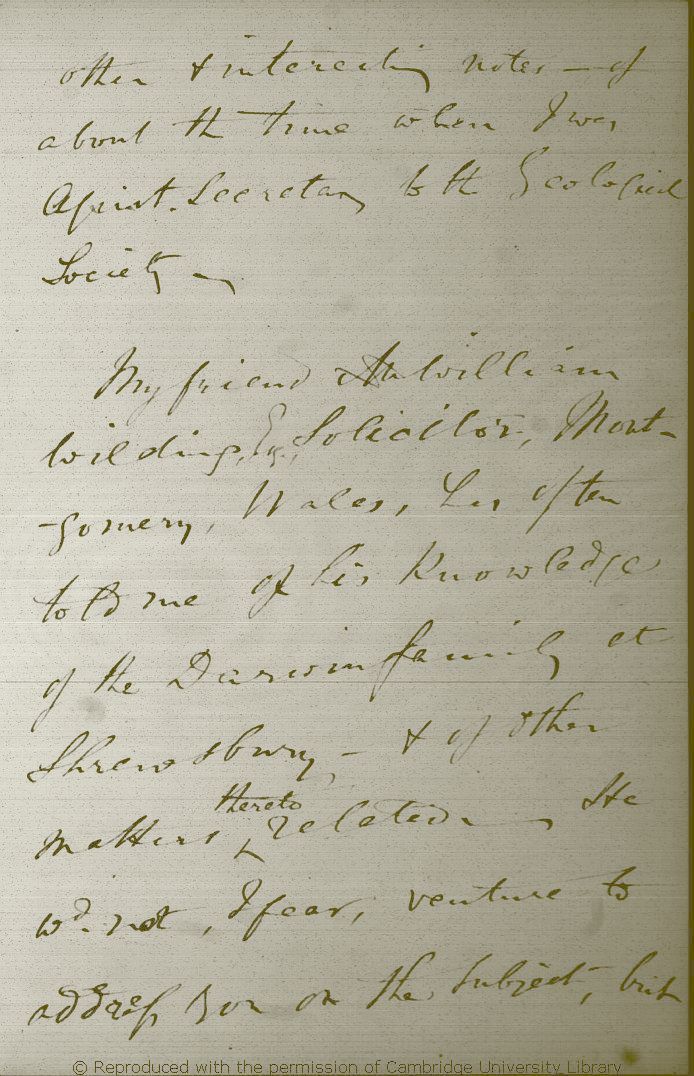 other & interesting notes — of
about the time when I was
Assist. Secretary to the Geological
Society —
My friend William
Wilding, Esq., Solicitor, Mont-
-gomery, Wales, has often
told me of his knowledge
of the Darwin family at
Shrewsbury, — & of other
thereto
matters relation. He
wd. not, I fear, venture to
address you on the subject, but
© Reproduced with the permission of Cambridge University Library